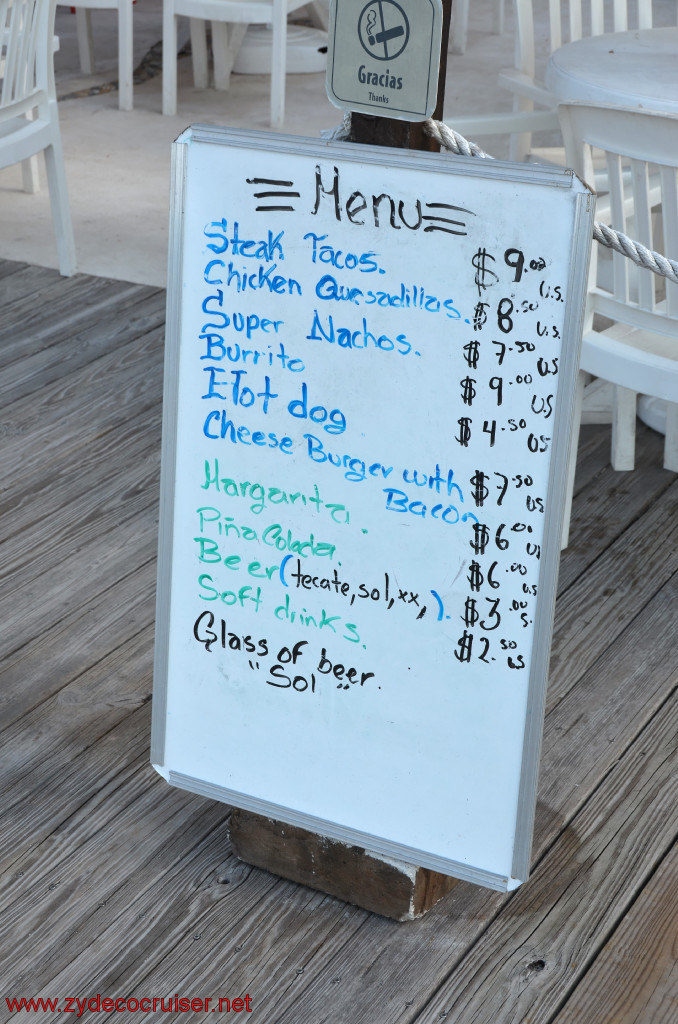 Gracias
Thanks
Menu
Steak Tacos. $9.00 U.S.
Chicken Quesadillas. $8.50 U.S.
Super Nachos. $7.50 US
Burrito $9.00 US
Hot dog $4.50 US
Cheese Burger with $7.50 US
Bacon
Margarita. $6.00 US
Piña Colada. $6.00 US
Beer (tecate, sol, xx,). $3.00 S.
Soft drinks. $2.50 US
Glass of beer.
"Sol"
www.zydecocruiser.net